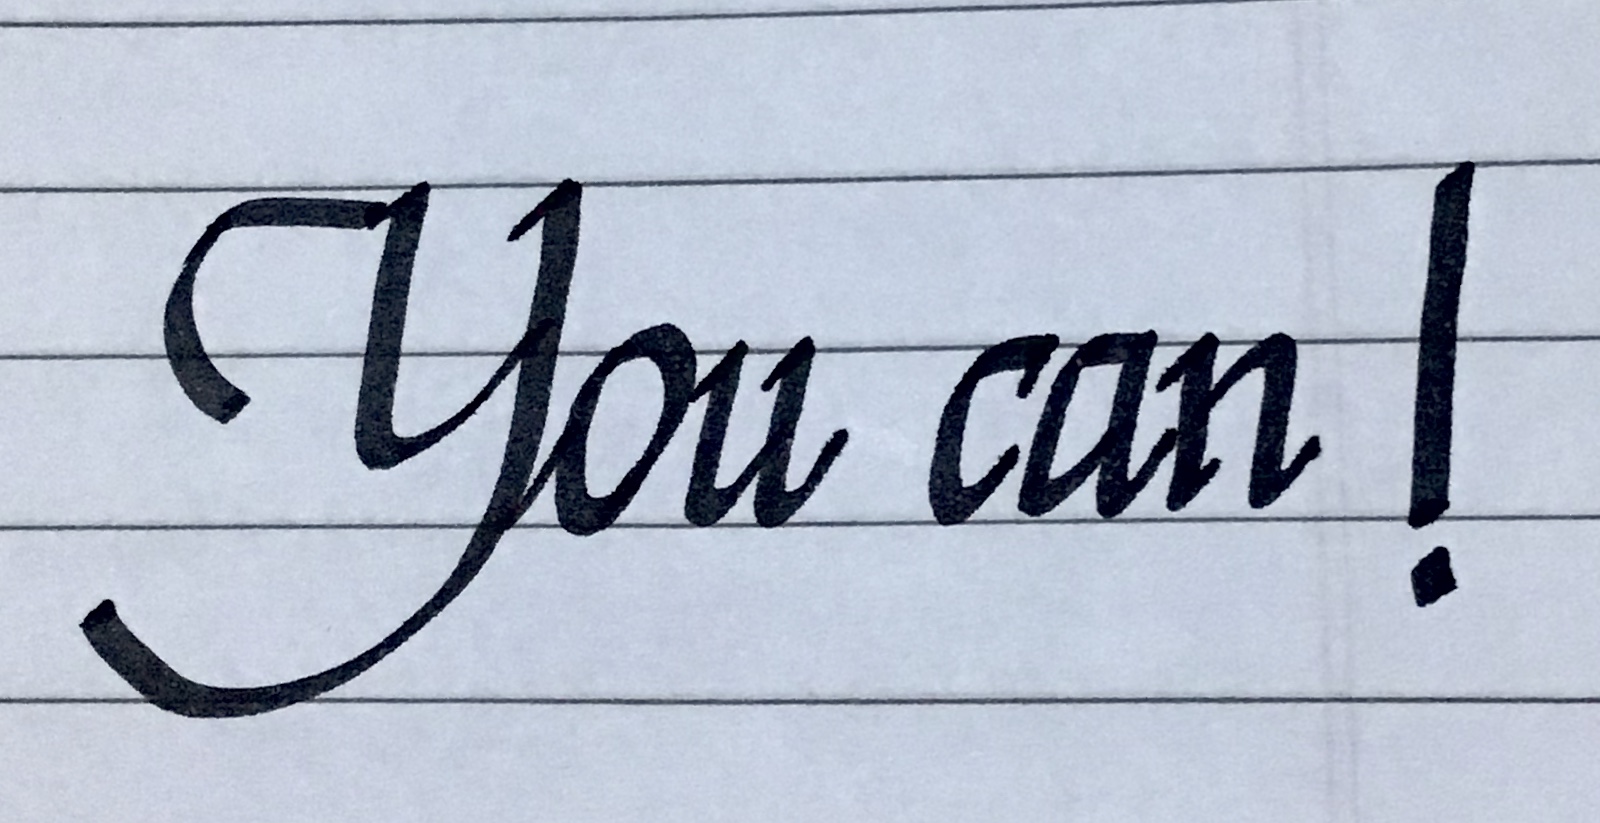 You can!